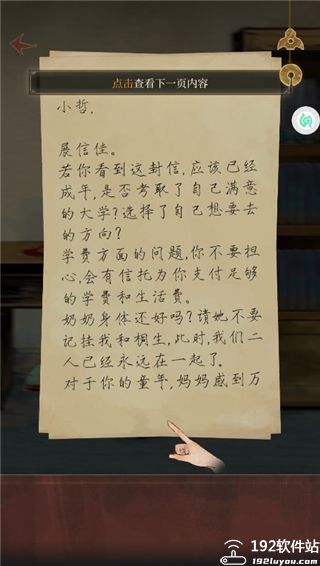 点击查看下一页内容
小哲,
展信佳。
若你看到这封信,应该已经
成年,是否考取了自己满意
的大学?选择了自己想要去
的方向?
学费方面的问题,你不要担
心,会有信托为你支付足够
的学费和生活费。
奶奶身体还好吗?请她不要
记挂我和桐生,此时,我们二
人已经永远在一起了。
对于你的童年,妈妈感到万
192软件站
www.192luyou.com